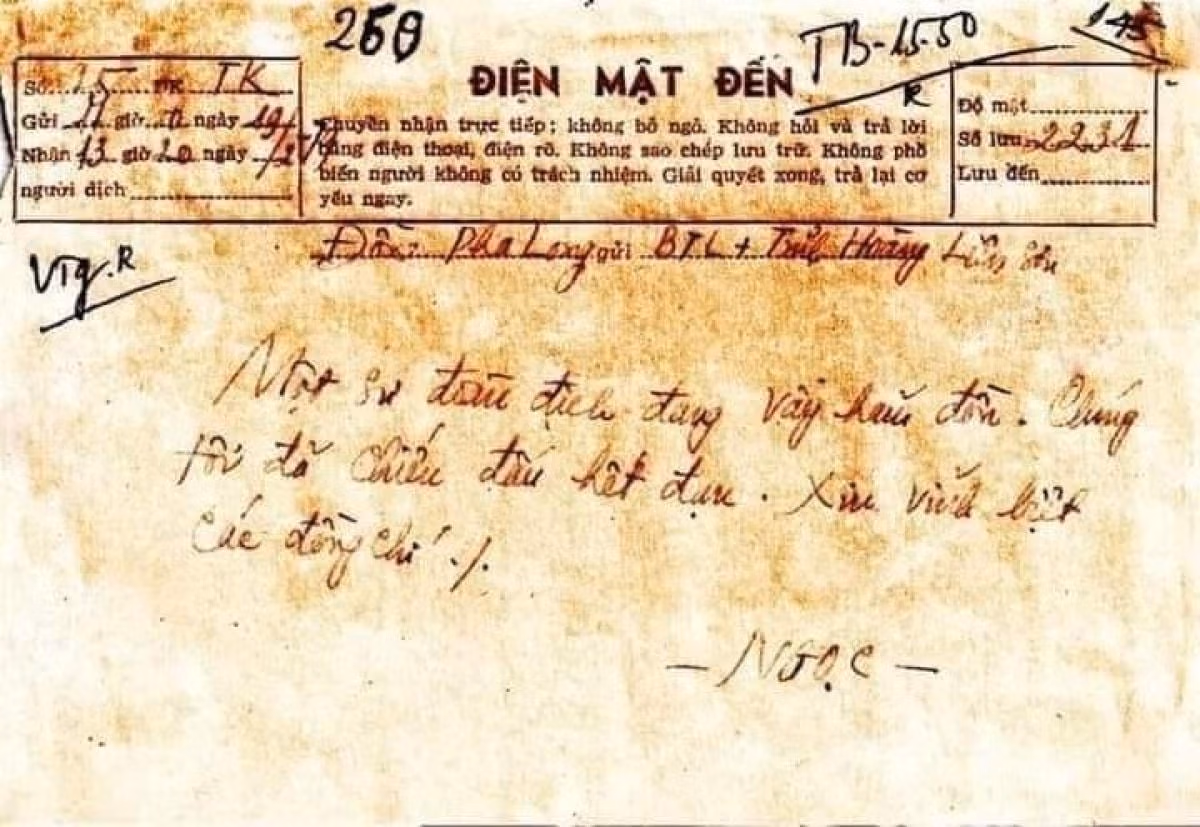 250
TB-15-50
145
ĐIỆN MẬT ĐẾN
R
Số 15 ĐK TK
Gửi 11 giờ ngày 19/
Nhận 13 giờ 20 ngày
người dịch
Chuyền nhận trực tiếp; không bỏ ngỏ. Không hỏi và trả lời
bằng điện thoại, điện rõ. Không sao chép lưu trữ. Không phổ
biến người không có trách nhiệm. Giải quyết xong, trả lại cơ
yếu ngay.
Độ mật
Số lưu 2231
Lưu đến
Đồn: Pha Long gửi BTL + Tỉnh Hoàng Liên Sơn
Vtg. R
Một sư đoàn địch đang vây hãm đồn. Chúng
tôi đã chiến đấu hết đạn. Xin vĩnh biệt
các đồng chí ./.
- NGỌC -